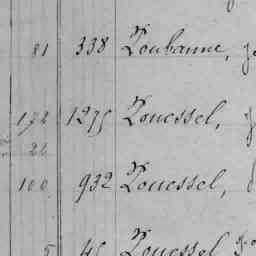 81 338 Loubanne,
172 1275 Louessel,
22
100 932 Louessel,
5 45 Louessel